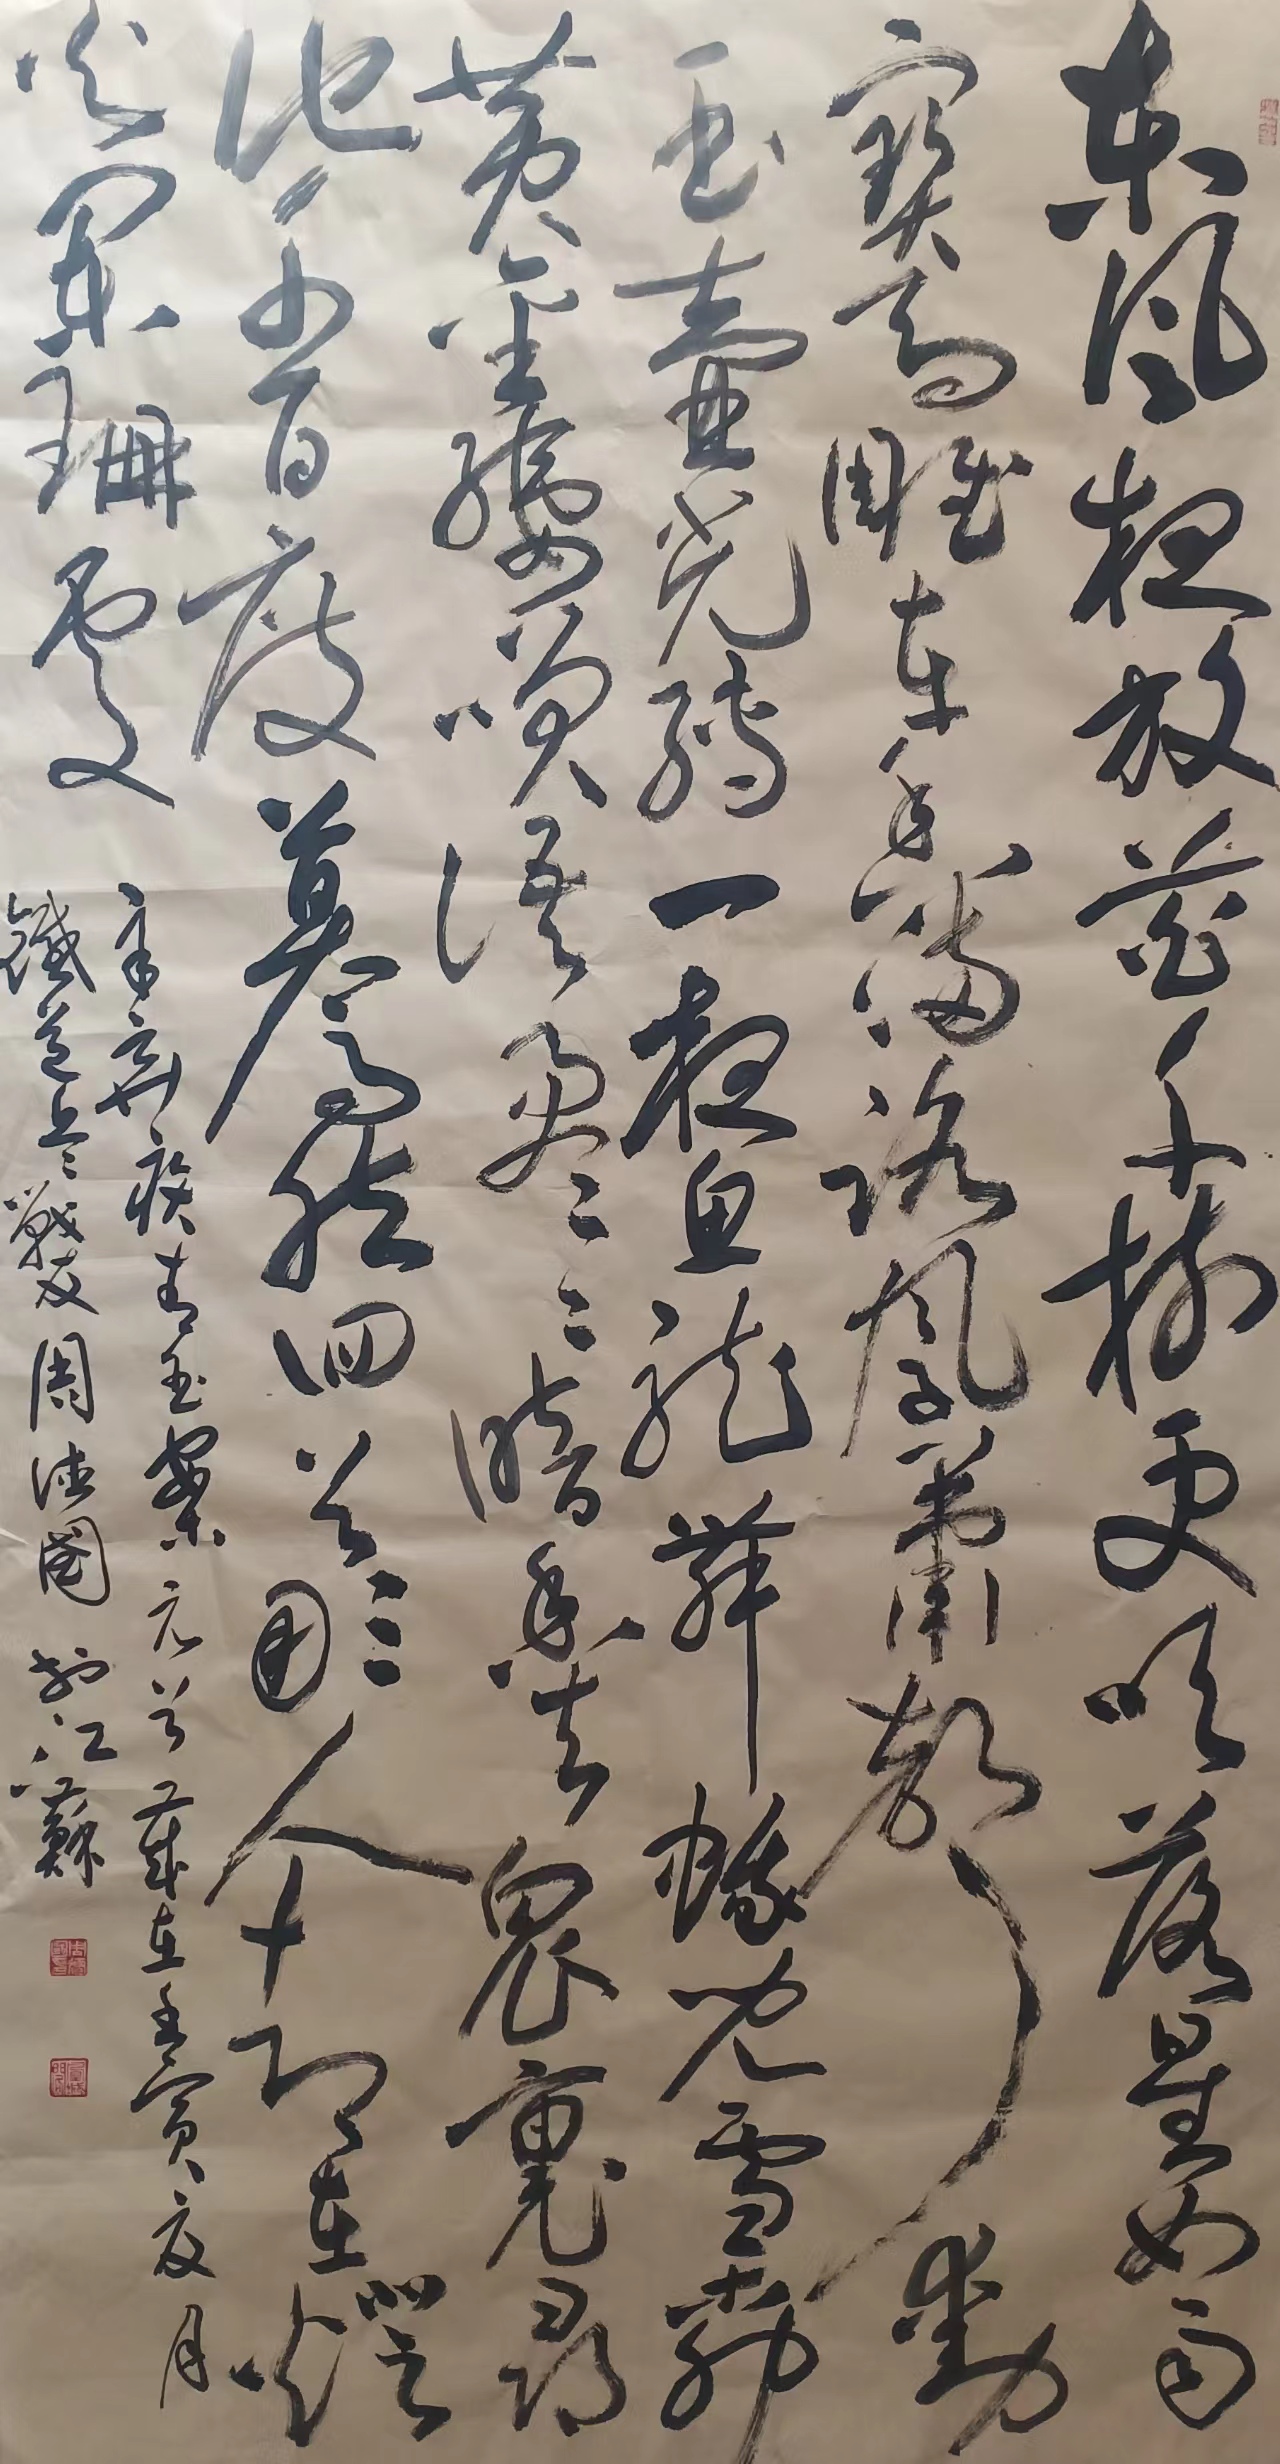 東風夜放花千樹更吹落星如雨
寶馬雕車香滿路鳳簫聲動
玉壺光轉一夜魚龍舞蛾兒雪柳
黃金縷笑語盈盈暗香去眾裏尋
他千百度驀然回首那人卻在燈
火闌珊處
辛棄疾青玉案元夕 歲在壬寅夏月
鐵道兵戰友周德國 於江蘇